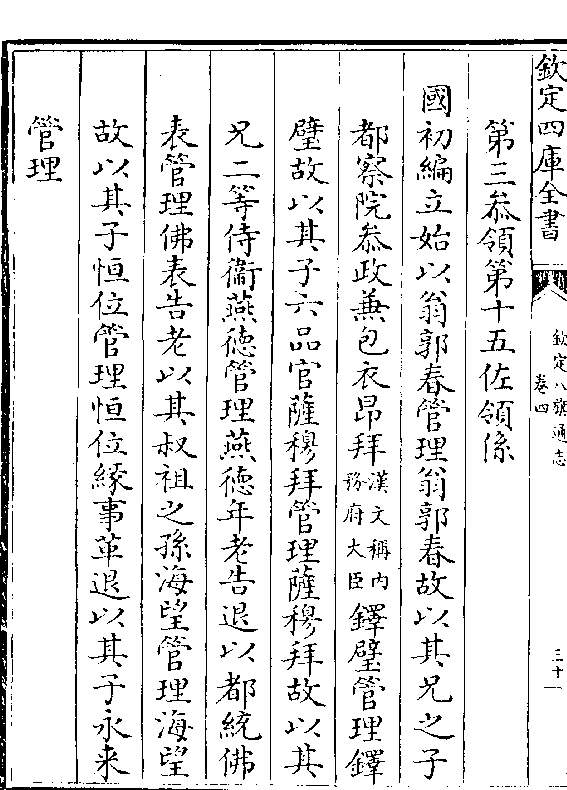 欽定四庫全書
欽定八旗通志
卷四
三十一
第三叅領第十五佐領係
國初編立始以翁郭春管理翁郭春故以其兄之子
都察院叅政兼包衣昂拜漢文稱内務府大臣鐸璧管理鐸
璧故以其子六品官薩穆拜管理薩穆拜故以其
兄二等侍衛燕德管理燕德年老告退以都統佛
表管理佛表告老以其叔祖之孫海望管理海望
故以其子恒位管理恒位緣事革退以其子永来
管理